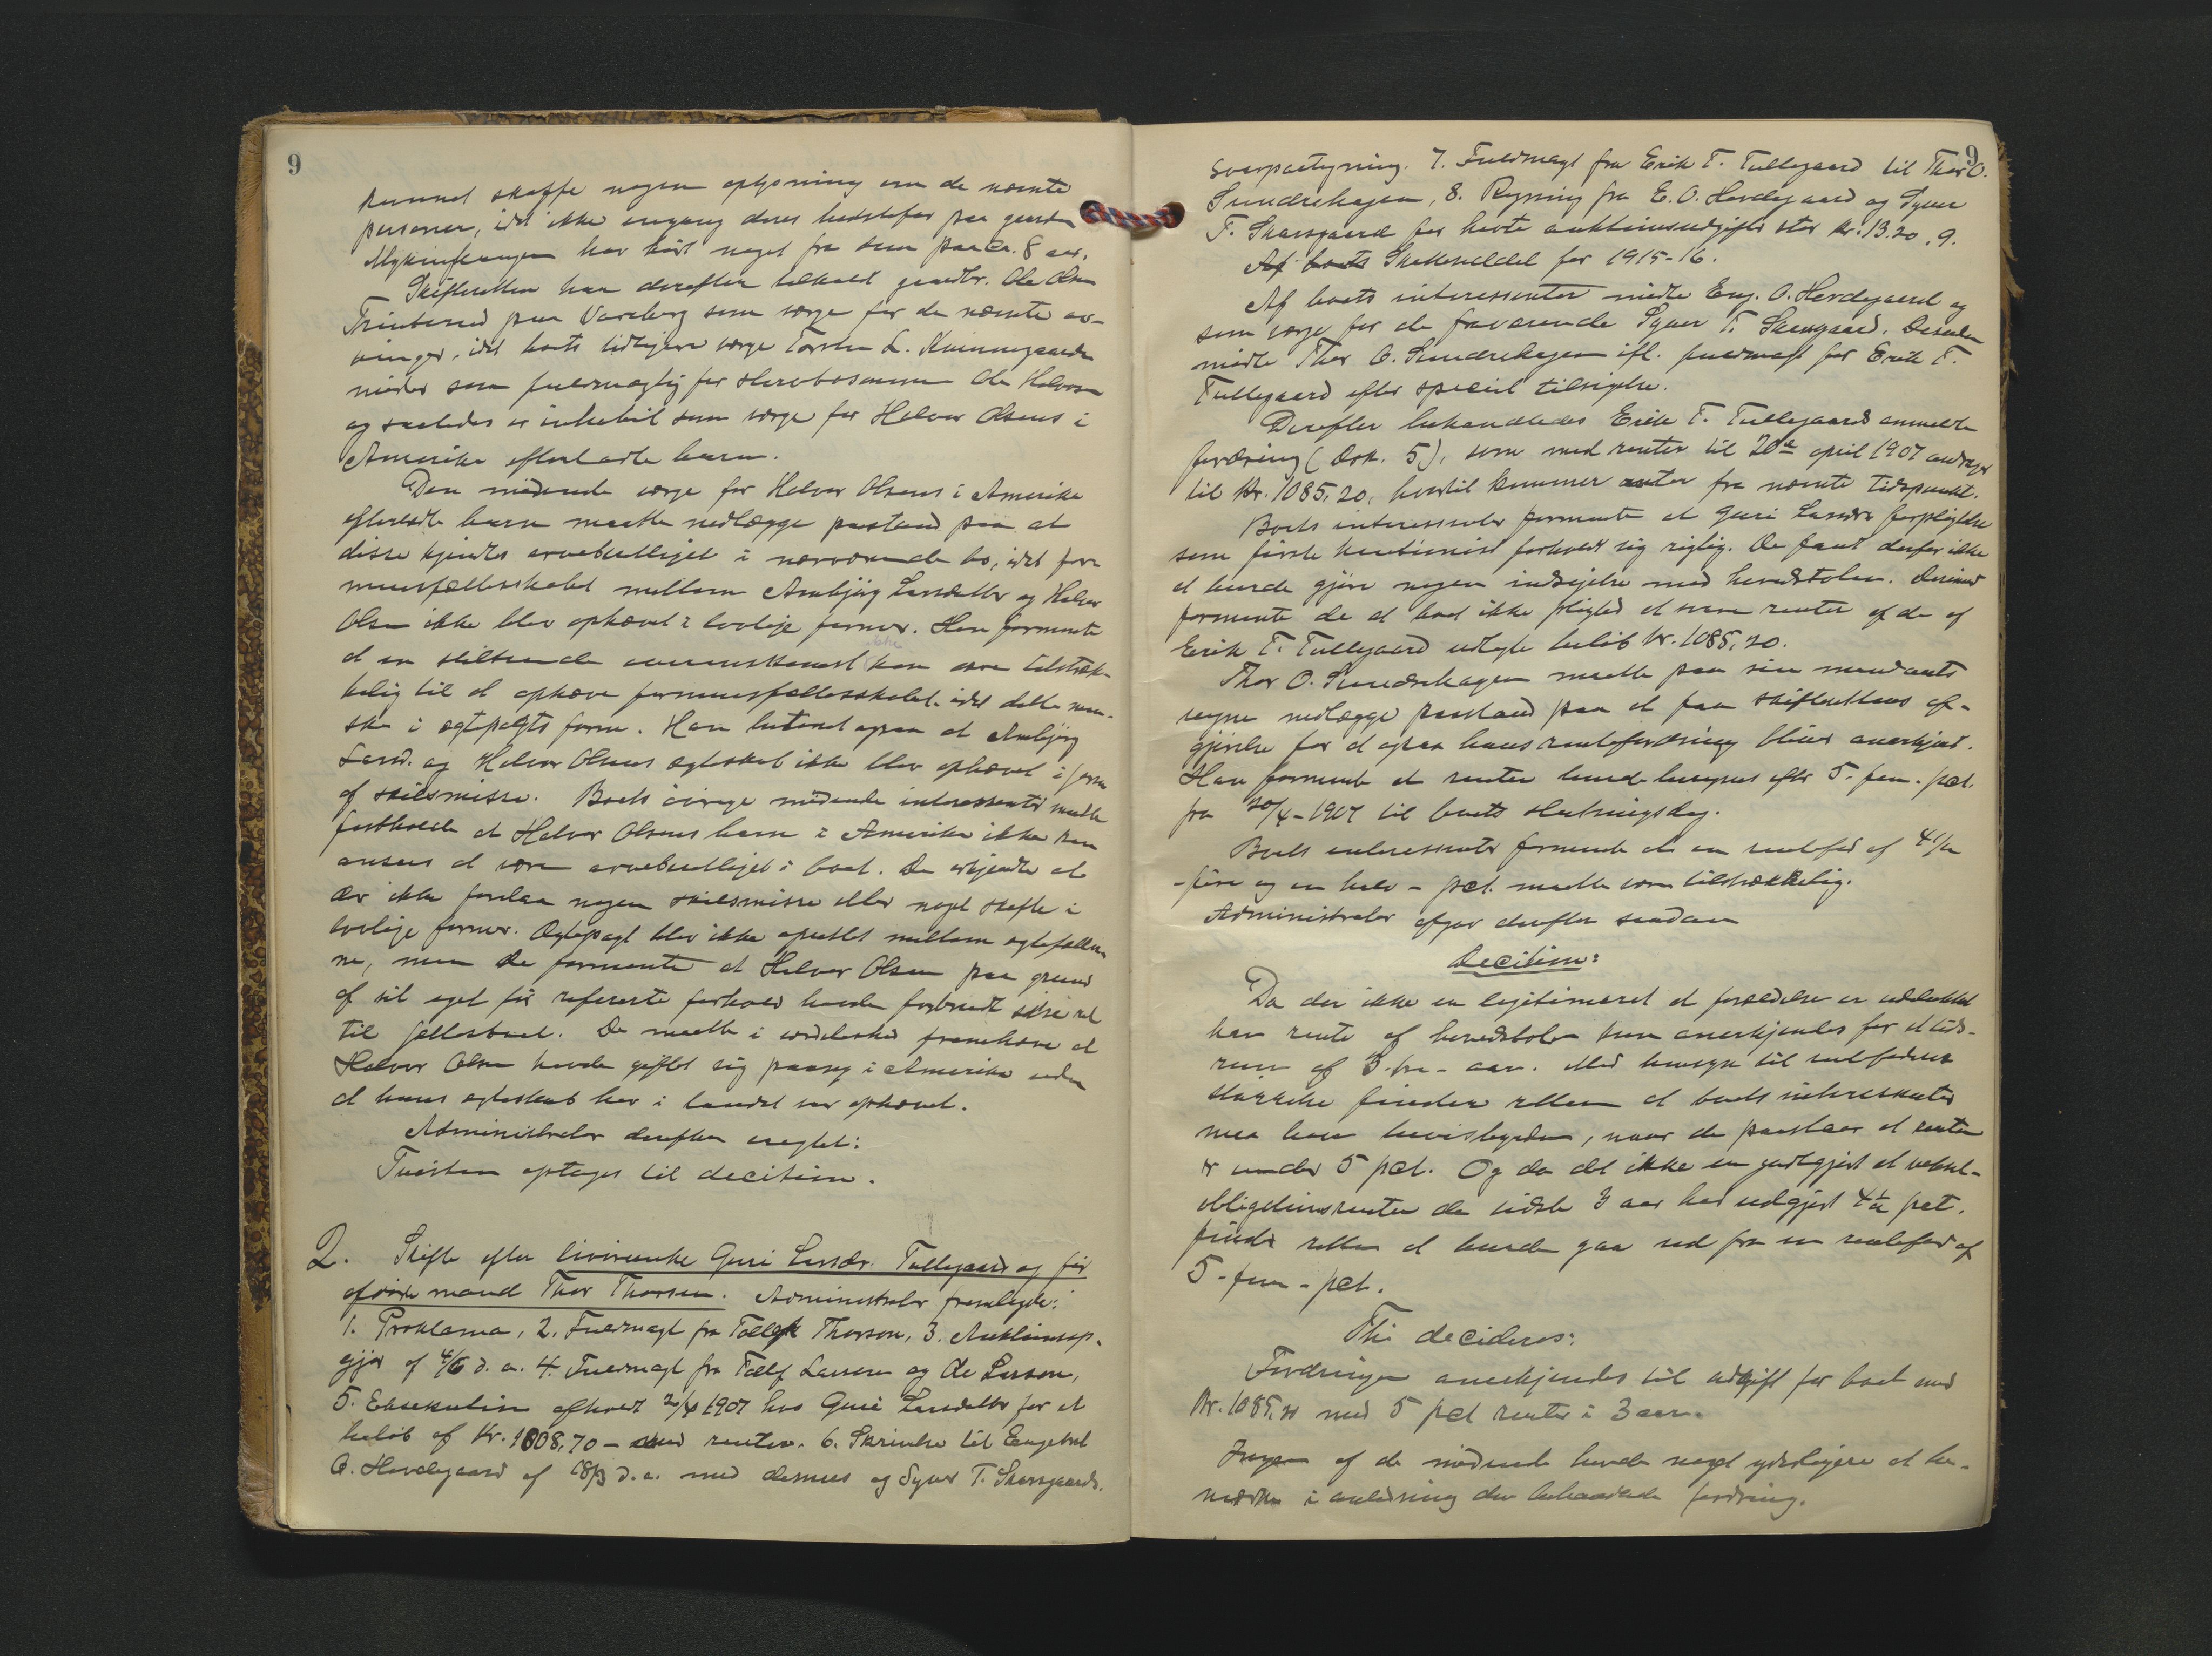 9
kunnet skaffe nogen oplysning om de nævnte
personer, idet ikke engang deres bedstefar paa gaarden
har hørt noget fra dem paa ca. 8 aar.
Skifteretten har derefter tilkaldt gaardbr. Ole Olsen
Trinterud paa Vardberg som verge for de nævnte ar-
vinger, idet boets tidligere verge Torsten L. Kvinnegaarden
møder som fuldmægtig for stervbosønnen Ole Halvorsen
og saaledes er inhabil som verge for Halvor Olsens i
Amerika efterladte barn.
Den mødende verge for Halvor Olsens i Amerika
efterladte barn maatte nedlægge paastand paa at
disse kjendes arveberettiget i nærværende bo, idet for-
muesfællesskabet mellem Ambjørg Larsdatter og Halvor
Olsen ikke blev ophævet i lovlige former. Han formente
at en stiltiende overenskomst kan ikke være tilstræk-
kelig til at ophæve formuesfællesskabet, idet dette maa
ske i egtepagts form. Han henviste ogsaa at Ambjørg
Larsd. og Halvor Olsens egteskab ikke blev ophævet i form
af skilsmisse. Boets øvrige mødende interessenter maatte
fastholde at Halvor Olsens barn i Amerika ikke kan
ansees at være arveberettiget i boet. De erkjendte at
der ikke forelaa nogen skilsmisse eller noget skifte i
lovlige former. Egtepagt blev ikke oprettet mellem egtefæller-
ne, men de formente at Halvor Olsen paa grund
af sit eget før refererte forhold havde forbrudt sin ret
til fællesboet. De maatte i særdeleshed fremhæve at
Halvor Olsen havde giftet sig paany i Amerika uden
at hans egteskab her i landet var ophævet.
Administrator derefter eragtet:
Tvisten optages til decition.
2. Skifte efter livørenke Guri Larsdr. Tullegaard og før
afdøde mand Thor Thorsen. Administrator fremlagde:
1. Proklama, 2. Fuldmagt fra Tollef Thorson, 3. Auktionsop-
gjør af 4/6 d. a. 4. Fuldmagt fra Tollef Larsen og Ole Larson,
5. Eksekution afholdt 20/4 1907 hos Guri Larsdatter for et
beløb af Kr. 1008,70 - med renter. 6. Skrivelse til Engebret
O. Hovdegaard af 18/3 d. a. med dennes og Syver T. Skarsgaards
9
svarpaategning. 7. Fuldmagt fra Erik T. Tullegaard til Thor O.
Sundrehagen, 8. Regning fra E. O. Hovdegaard og Syver
T. Skarsgaard for havte auktionsudgifter stor kr. 13.20, 9.
Af boets Skatteseddel for 1915-16.
Af boets interessenter mødte Eng. O. Hovdegaard og
som verge for de fraværende Syver T. Skarsgaard. Desuden
mødte Thor O. Sundrehagen ifl. fuldmagt for Erik T.
Tullegaard efter speciel tilsigelse.
Derefter behandledes Erik T. Tullegaards anmeldte
fordring (dok. 5), som med renter til 20de april 1907 andrager
til Kr. 1085,20, hvortil kommer renter fra nævnte tidspunkt.
Boets interessenter formente at Guri Larsdrs forpligtelse
som første kautionist forholdt sig rigtig. De fant derfor ikke
at burde gjøre nogen indsigelse mod hovedstolen. Derimod
formente de at boet ikke pligted at svare renter af de af
Erik T. Tullegaard utlagte beløb Kr. 1085,20.
Thor O. Sundrehagen maatte paa sin mandants
vegne nedlægge paastand paa at faa skifterettens af-
gjørelse for at ogsaa hans rentefordring bliver anerkjent.
Han formente at renten burde beregnes efter 5 - fem - pct.
fra 20/4-1907 til boets slutningsdag.
Boets interessenter formente at en rentefod af 4 1/2
- fire og en halv - pct. maatte være tilstrækkelig.
Administrator afgav derefter saadan
Decition:
Da der ikke en legitimeret at forældelse er udelukket
kan rente af hovedstolen kun anerkjendes for et tids-
rum af 3 - tre - aar. Med hensyn til rentefodens
størrelse finder retten at boets interessenter
maa have bevisbyrden, naar de paastaar at renten
er under 5 pct. Og da det ikke en godtgjort at veksel-
obligationsrenten de sidste 3 aar har udgjort 4 1/2 pct.
finder retten at burde gaa ud fra en rentefod af
5 - fem - pct.
Thi decideres:
Fordringen anerkjendes til udgift for boet med
Kr. 1085,20 med 5 pct renter i 3 aar.
Ingen af de mødende havde noget yderligere at be-
mærke i anledning den behandlede fordring.